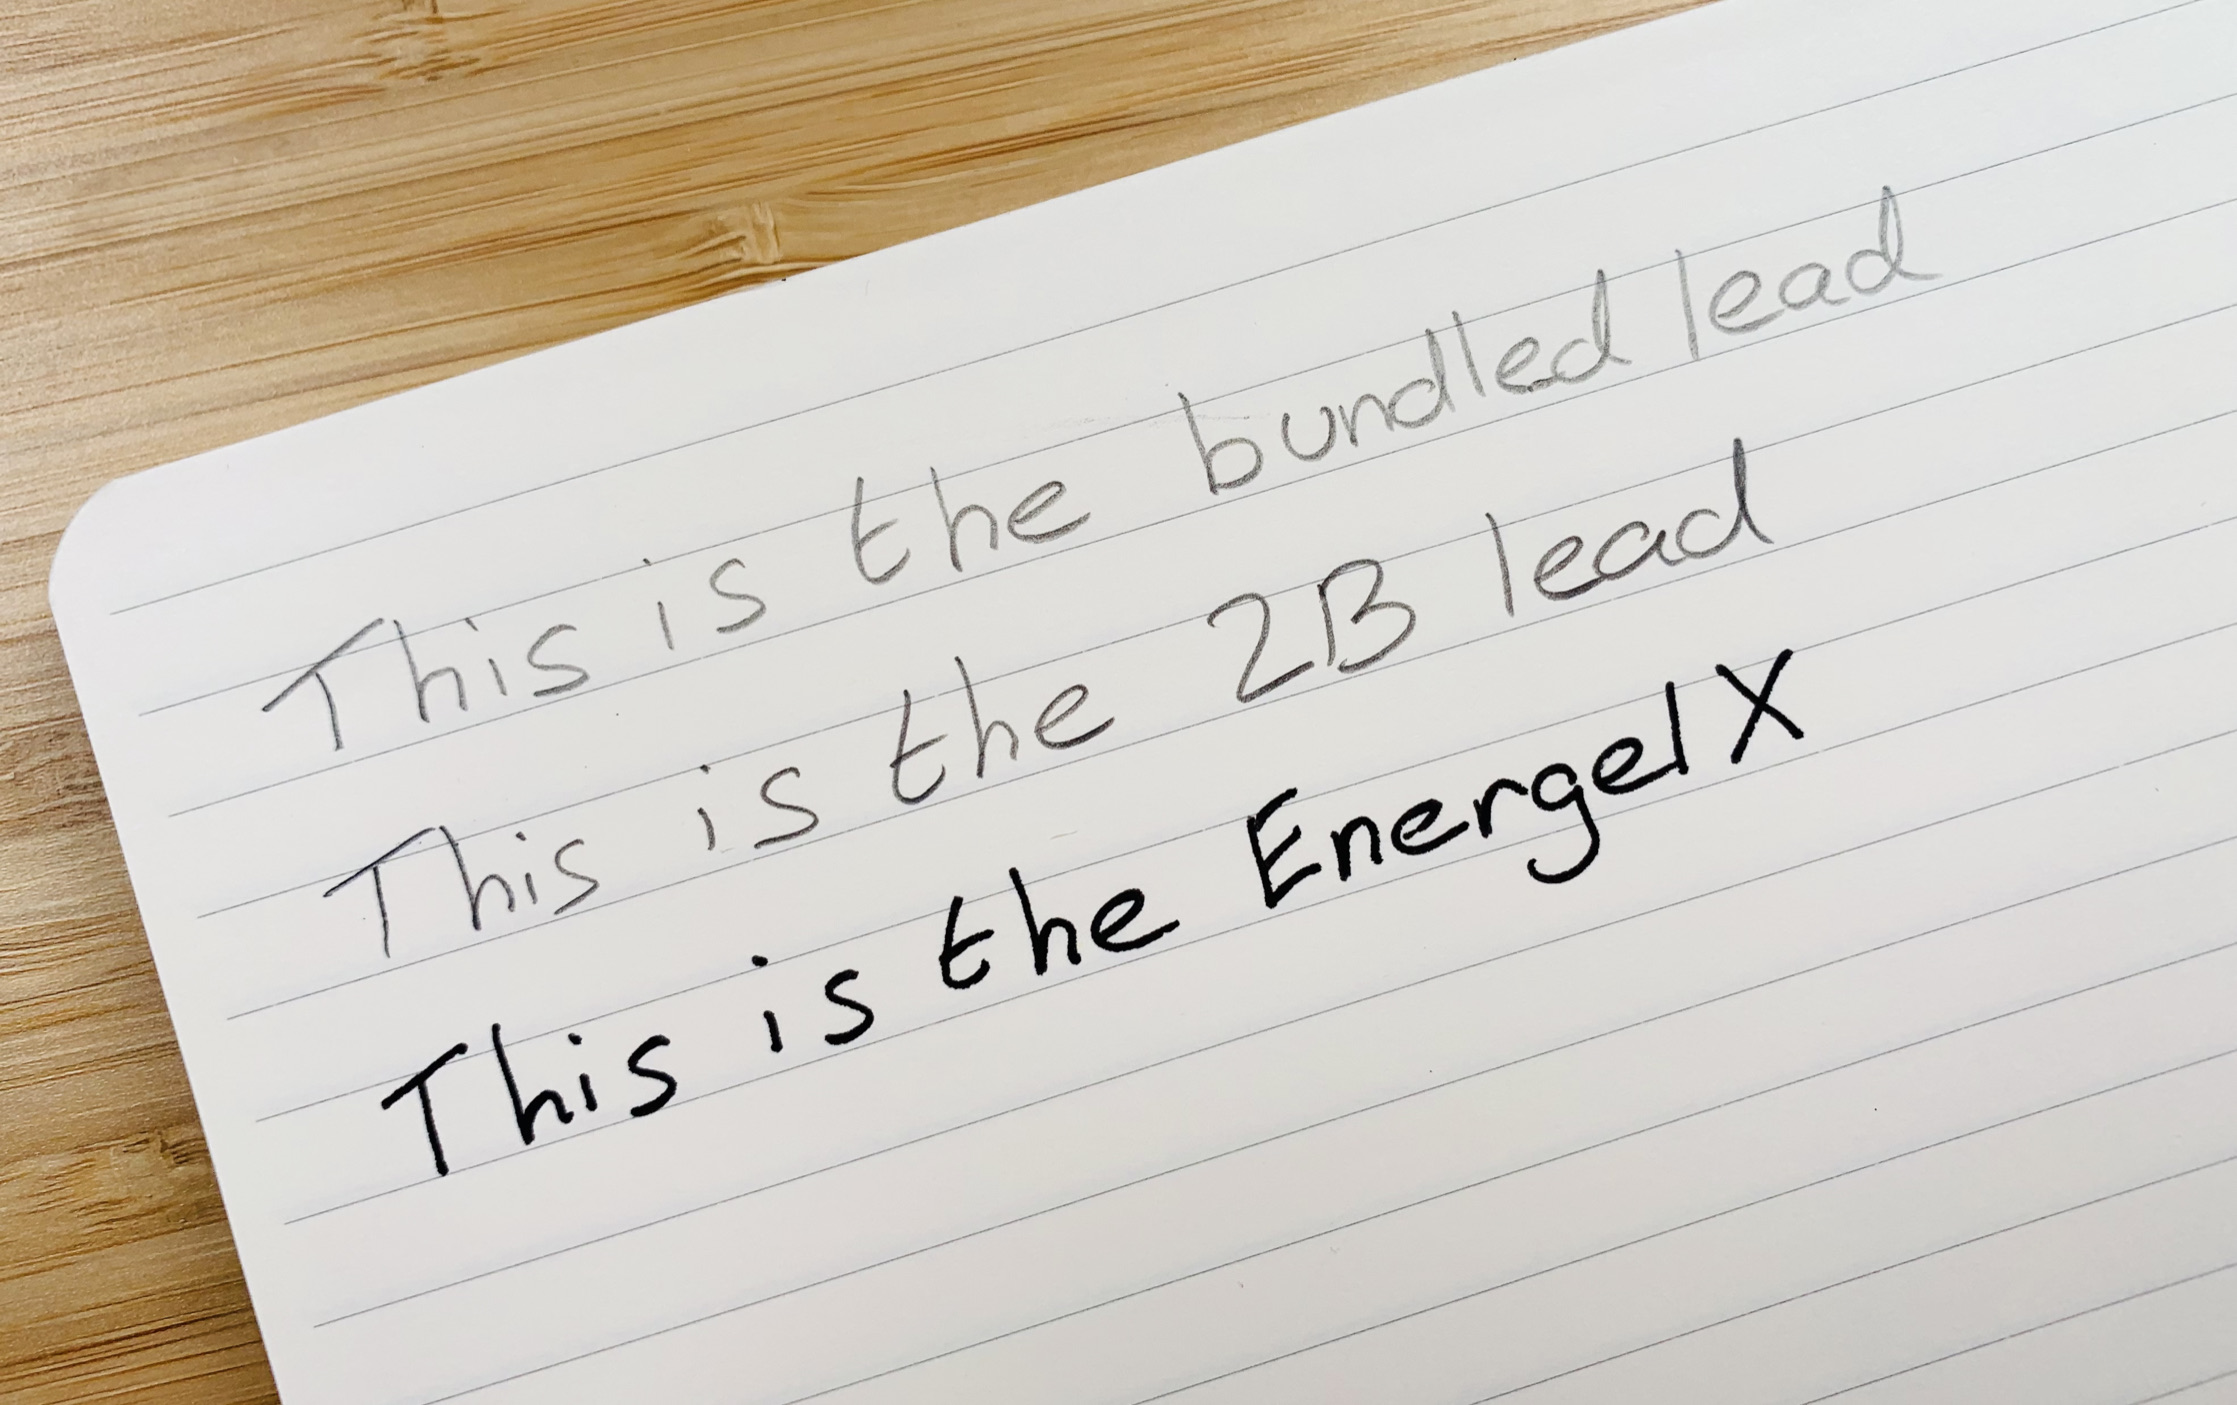 This is the bundled lead
This is the 2B lead
This is the Energel X